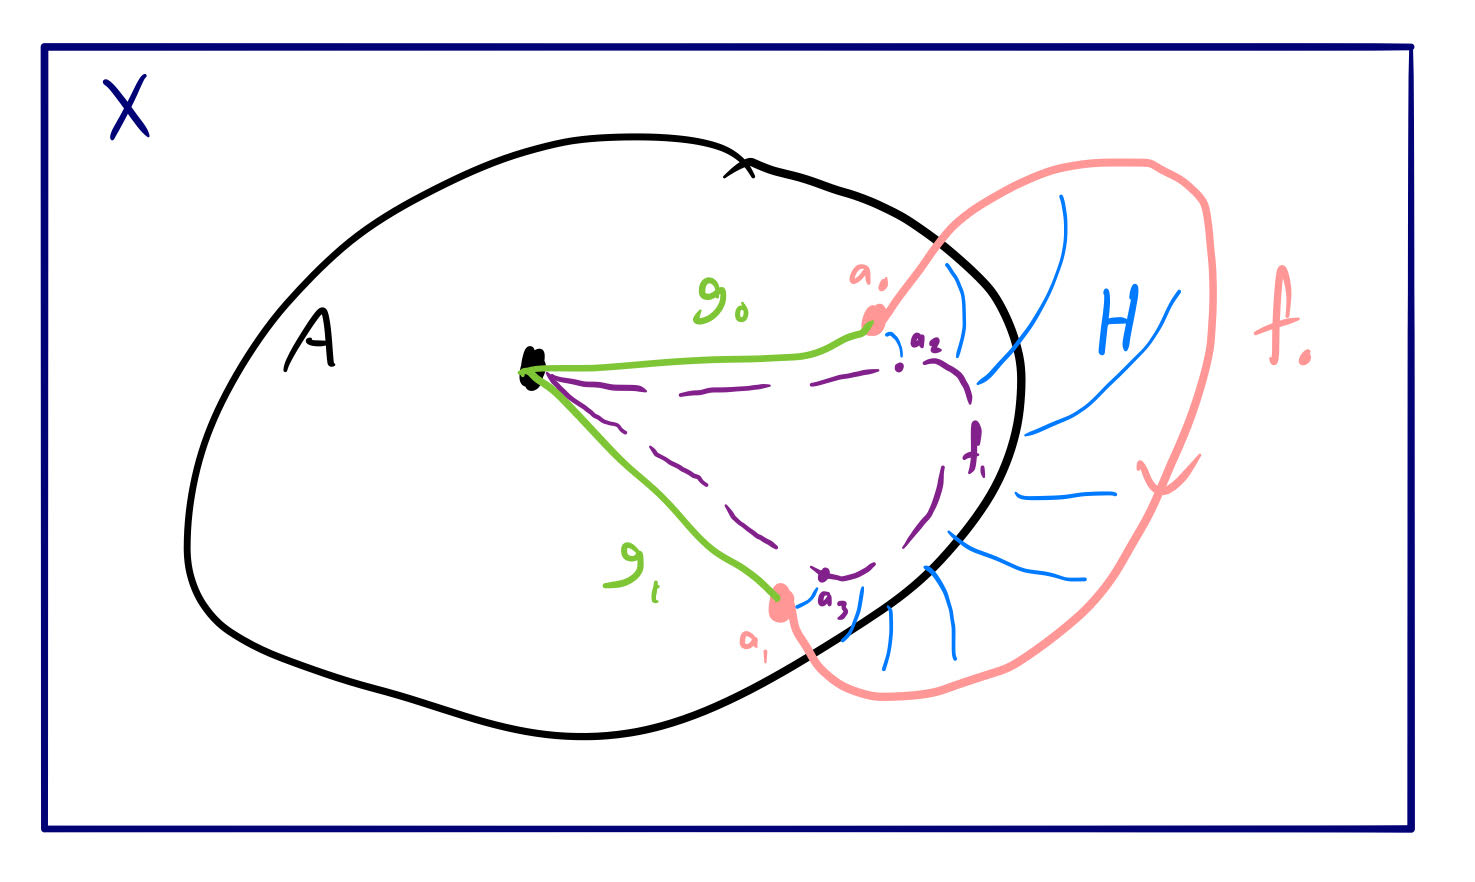 X
A
g₀
a₀
a₂
H
f₀
f₁
g₁
a₃
a₁